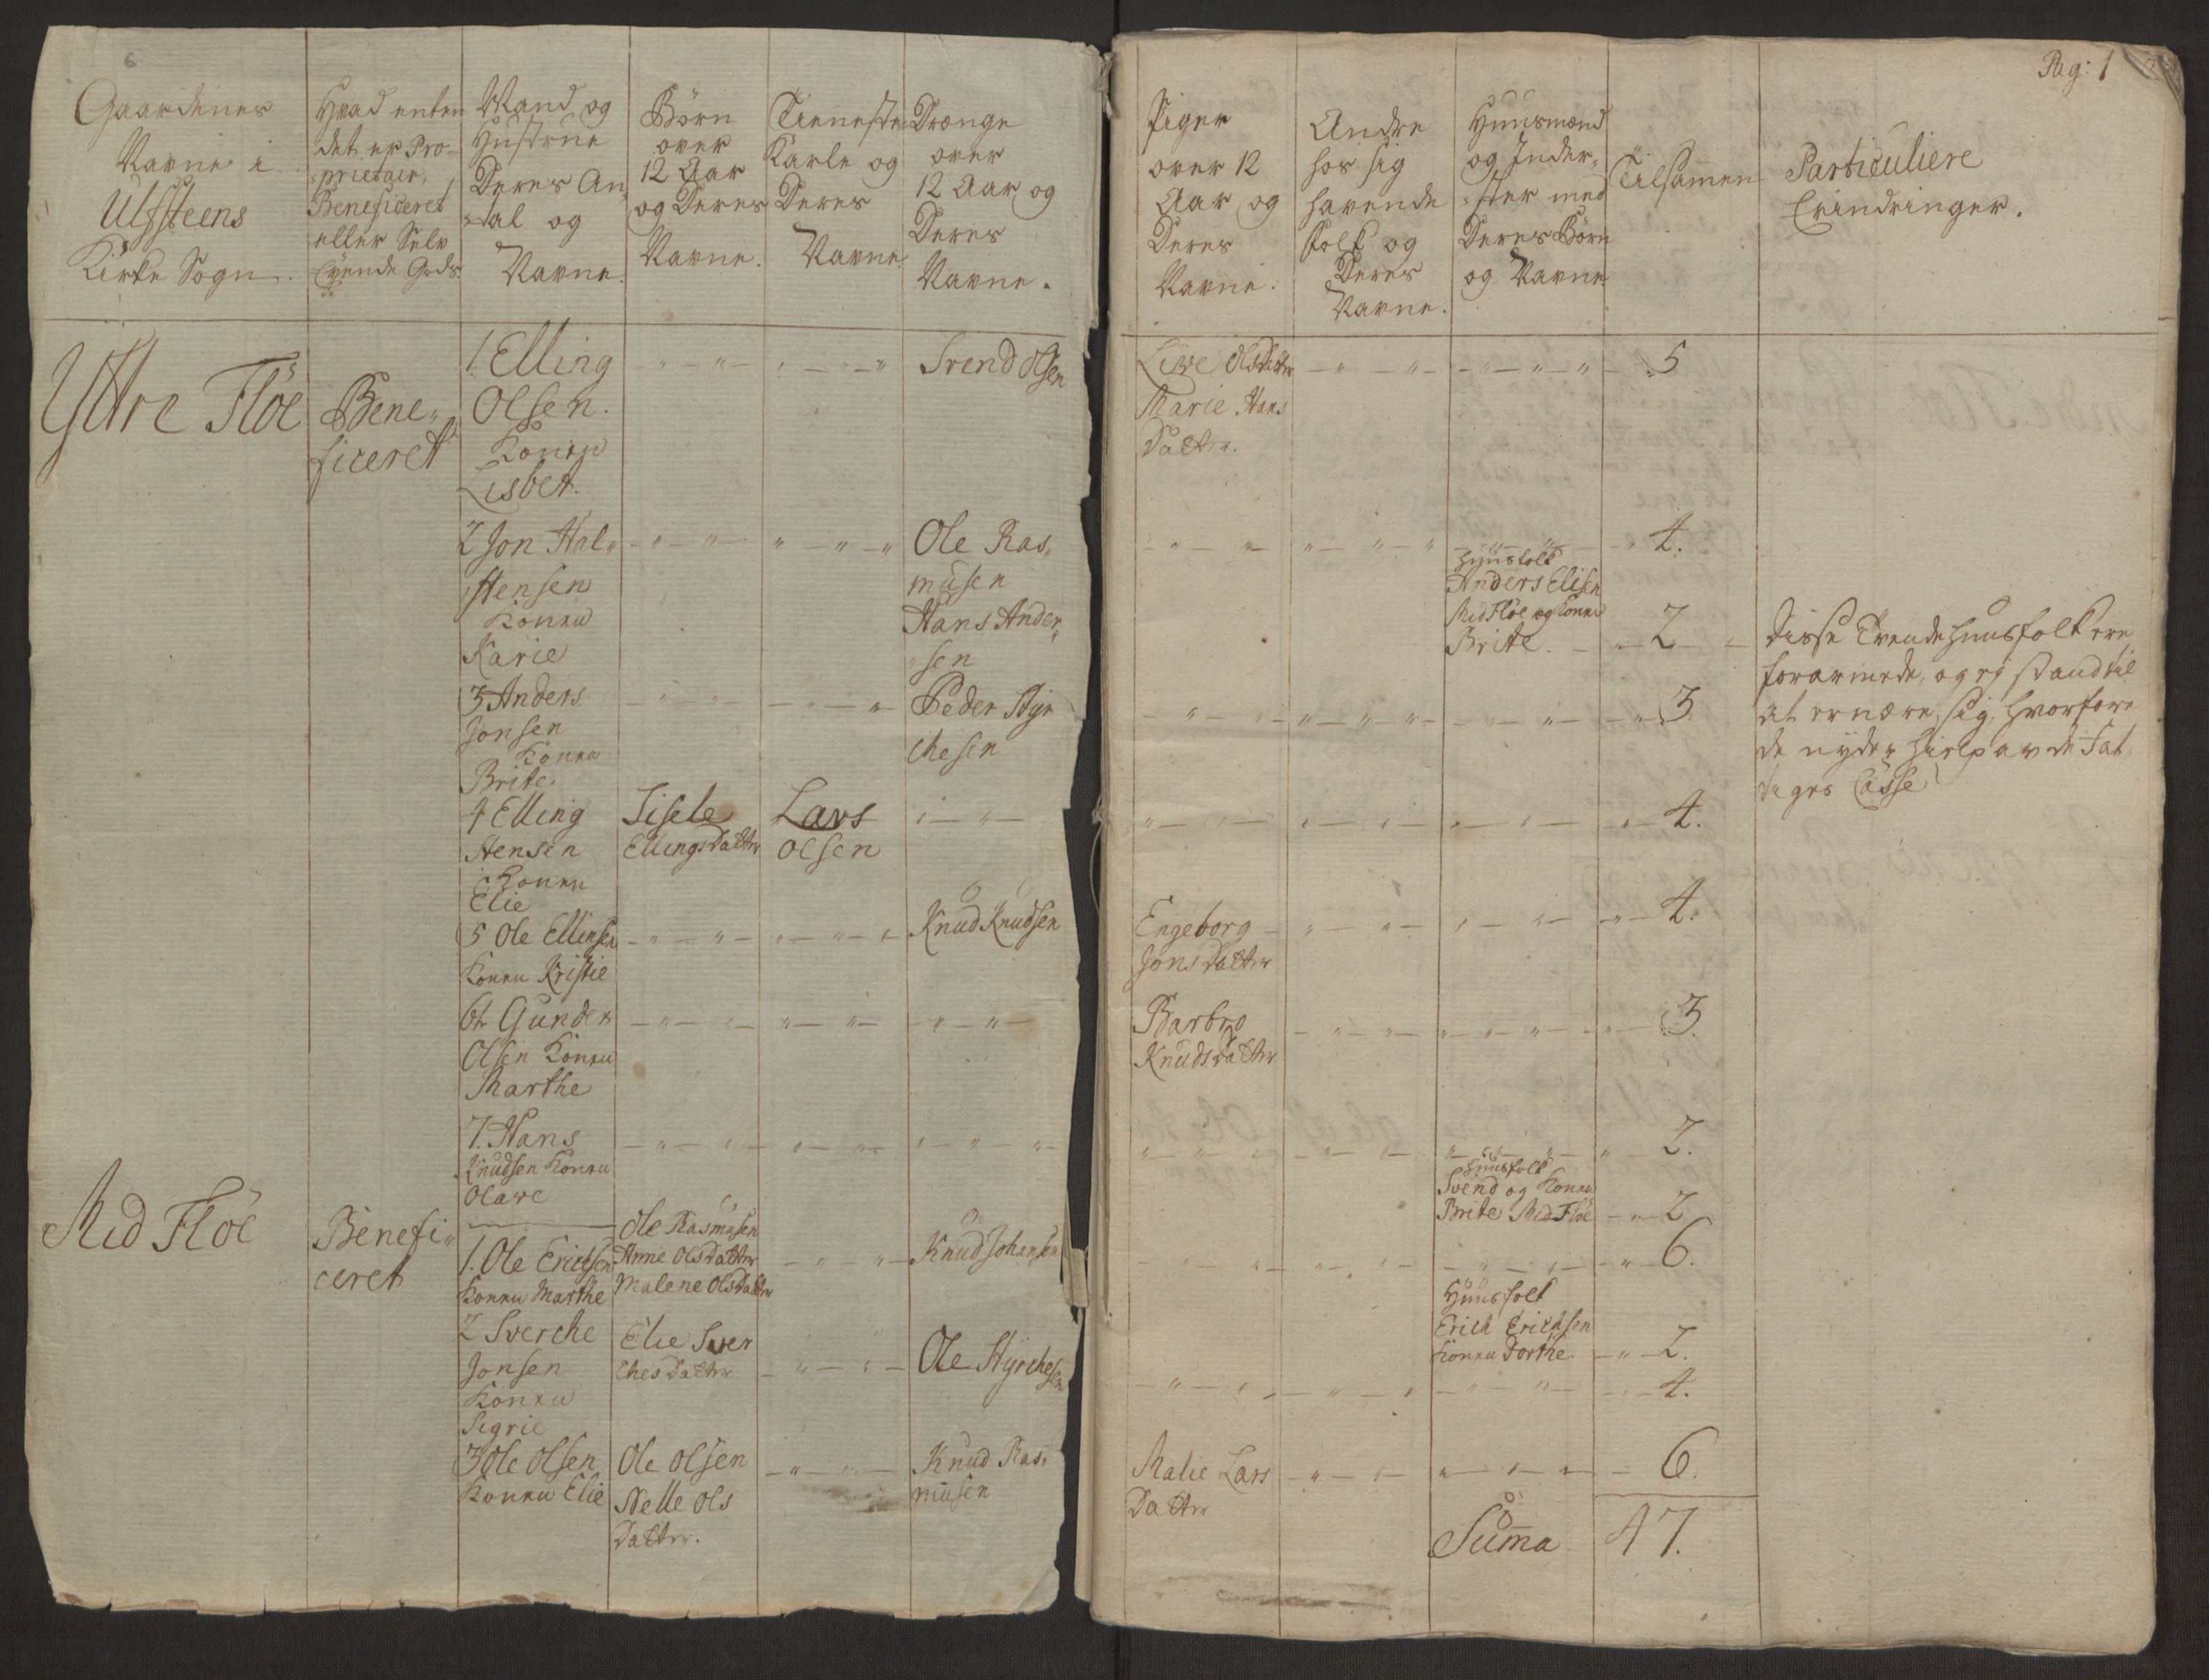 6
Gaardenes
Navne i
Ulfsteens
Kirke Sogn.
Hvad enten
det er Pro-
prietair,
Beneficeret
eller Selv
Eyende Gods
Mand og
Hustrue
Deres An-
tal og
Navne.
Börn
over
12 Aar
og Deres
Navne.
Tieneste
Karle og
Deres
Navne
Drænge
over
12 Aar og
Deres
Navne.
Ÿttre Flöe
Bene-
ficeret
1. Elling
Olsen.
Konen
Lisbet.
Svend Olsen
2 Jon Hal-
stensen
Konen
Karie
Ole Ras-
musen
Hans Ander-
sen
3 Anders
Jonsen
Konen
Brite.
Peder Styr
chesen
4 Elling
Stensen
Konen
Elie
Sisele
Ellingsdatter
Lars
Olsen
5 Ole Ellinsen
Konen Kristie
Knud Knudsen
6t Gunder
Olsen Konen
Marthe
7. Hans
Knudsen Konen
Olave
Mid Flöe
Benefi-
ceret
1. Ole Erichsen
Konen Marthe
Ole Rasmusen
Anne Olsdatter
Malene Olsdatter
Knud Johansen
2 Sverche
Jonsen
Konen
Sigrie
Elie Sver
chesdatter
Ole Styrchesen
3 Ole Olsen
Konen Elie
Ole Olsen
Nelle Ols
Datter.
Knud Ras-
musen
Pag: 1
Piger
over 12
Aar og
Deres
Navne.
Andre
hos sig
havende
folk og
Deres
Navne.
Huusmænd
og Inder-
ster med
Deres Börn
og Navne
Tilsammen
Particuliere
Erindringer.
Live Olsdatter
Marie Hans
Datter.
5
4.
Huusfolk
Anders Elisen
Mid Flöe og Konen
Brite.
2
Disse Tvende Huusfolk ere
forarmede, og ej stand til
at ernære sig, hvorfore
de nyder hielp av de Fat
tiges Casse
3.
4.
Engeborg
Jonsdatter
4.
Barbro
Knudsdatter
3
2.
Huusfolk
Svend og Konen
Brite Mid Flöe
2
6.
Huusfolk
Erich Erichsen
Konen Dorthe
2.
4.
Malie Lars
Datter
6.
Summa 47.